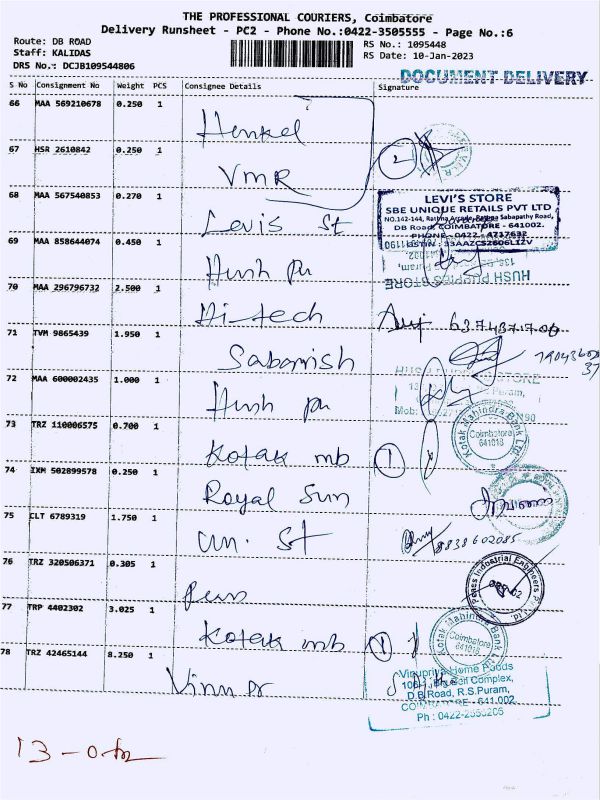 THE PROFESSIONAL COURIERS, Coimbatore
Delivery Runsheet - PC2 - Phone No.:0422-3505555 - Page No.:6
Route: DB ROAD
Staff: KALIDAS
DRS No.: DCJB109544806
RS No.: 1095448
RS Date: 10-Jan-2023
DOCUMENT DELIVERY
S No Consignment No Weight PCS Consignee Details Signature
66 MAA 569210678 0.250 1 Henkel
67 HSR 2610842 0.250 1 VMR 2
68 MAA 567540853 0.270 1 Levis St
LEVI'S STORE
SBE UNIQUE RETAILS PVT LTD
NO.142-144, Rattina Sabapathy Road,
DB Road, COIMBATORE - 641002.
PHONE - 0422 - 4717632
GSTIN : 33AAZCS2606L1ZV
69 MAA 858644074 0.450 1 Hush pu
HUSH PUPPIES STORE
70 MAA 296796732 2.500 1 Hi-tech
71 TVM 9865439 1.950 1 Sabarish
72 MAA 600002435 1.000 1 Hush pu
STORE
Puram,
Mob:
73 TRZ 110006575 0.700 1 Kotak mb 1
Kotak Mahindra Bank Ltd
Coimbatore
641018
74 IXM 502899578 0.250 1 Royal Sun
75 CLT 6789319 1.750 1 un. St 8838602085
76 TRZ 320506371 0.305 1
Industrial Engineers P Ltd.
77 TRP 4402302 3.025 1 Kotak mb 1
Kotak Mahindra Bank Ltd
Coimbatore
641018
78 TRZ 42465144 8.250 1 Vinu pr
Vinupriya Home Foods
Complex,
D.B.Road, R.S.Puram,
COIMBATORE - 641 002.
Ph : 0422-
13 -